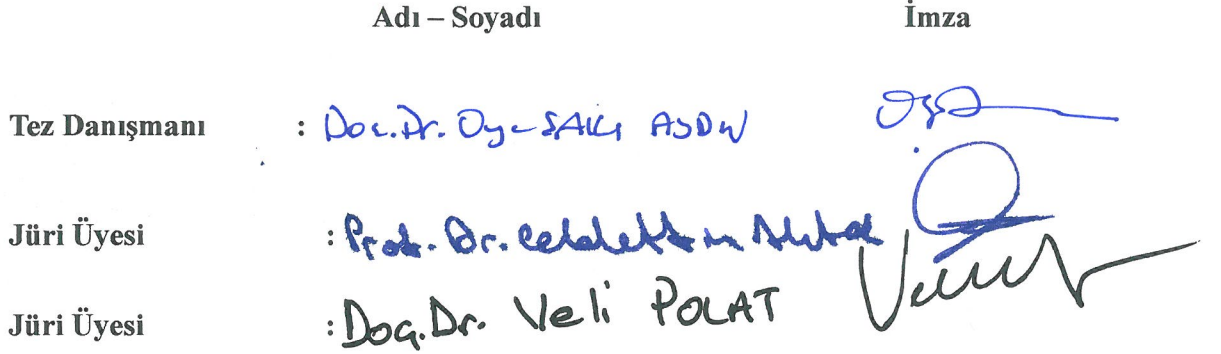 Adı – Soyadı İmza
Tez Danışmanı : Doç.Dr. Oya SAKI AYDIN
Jüri Üyesi : Prof. Dr. Celalettin Aktaş
Jüri Üyesi : Doç.Dr. Veli POLAT